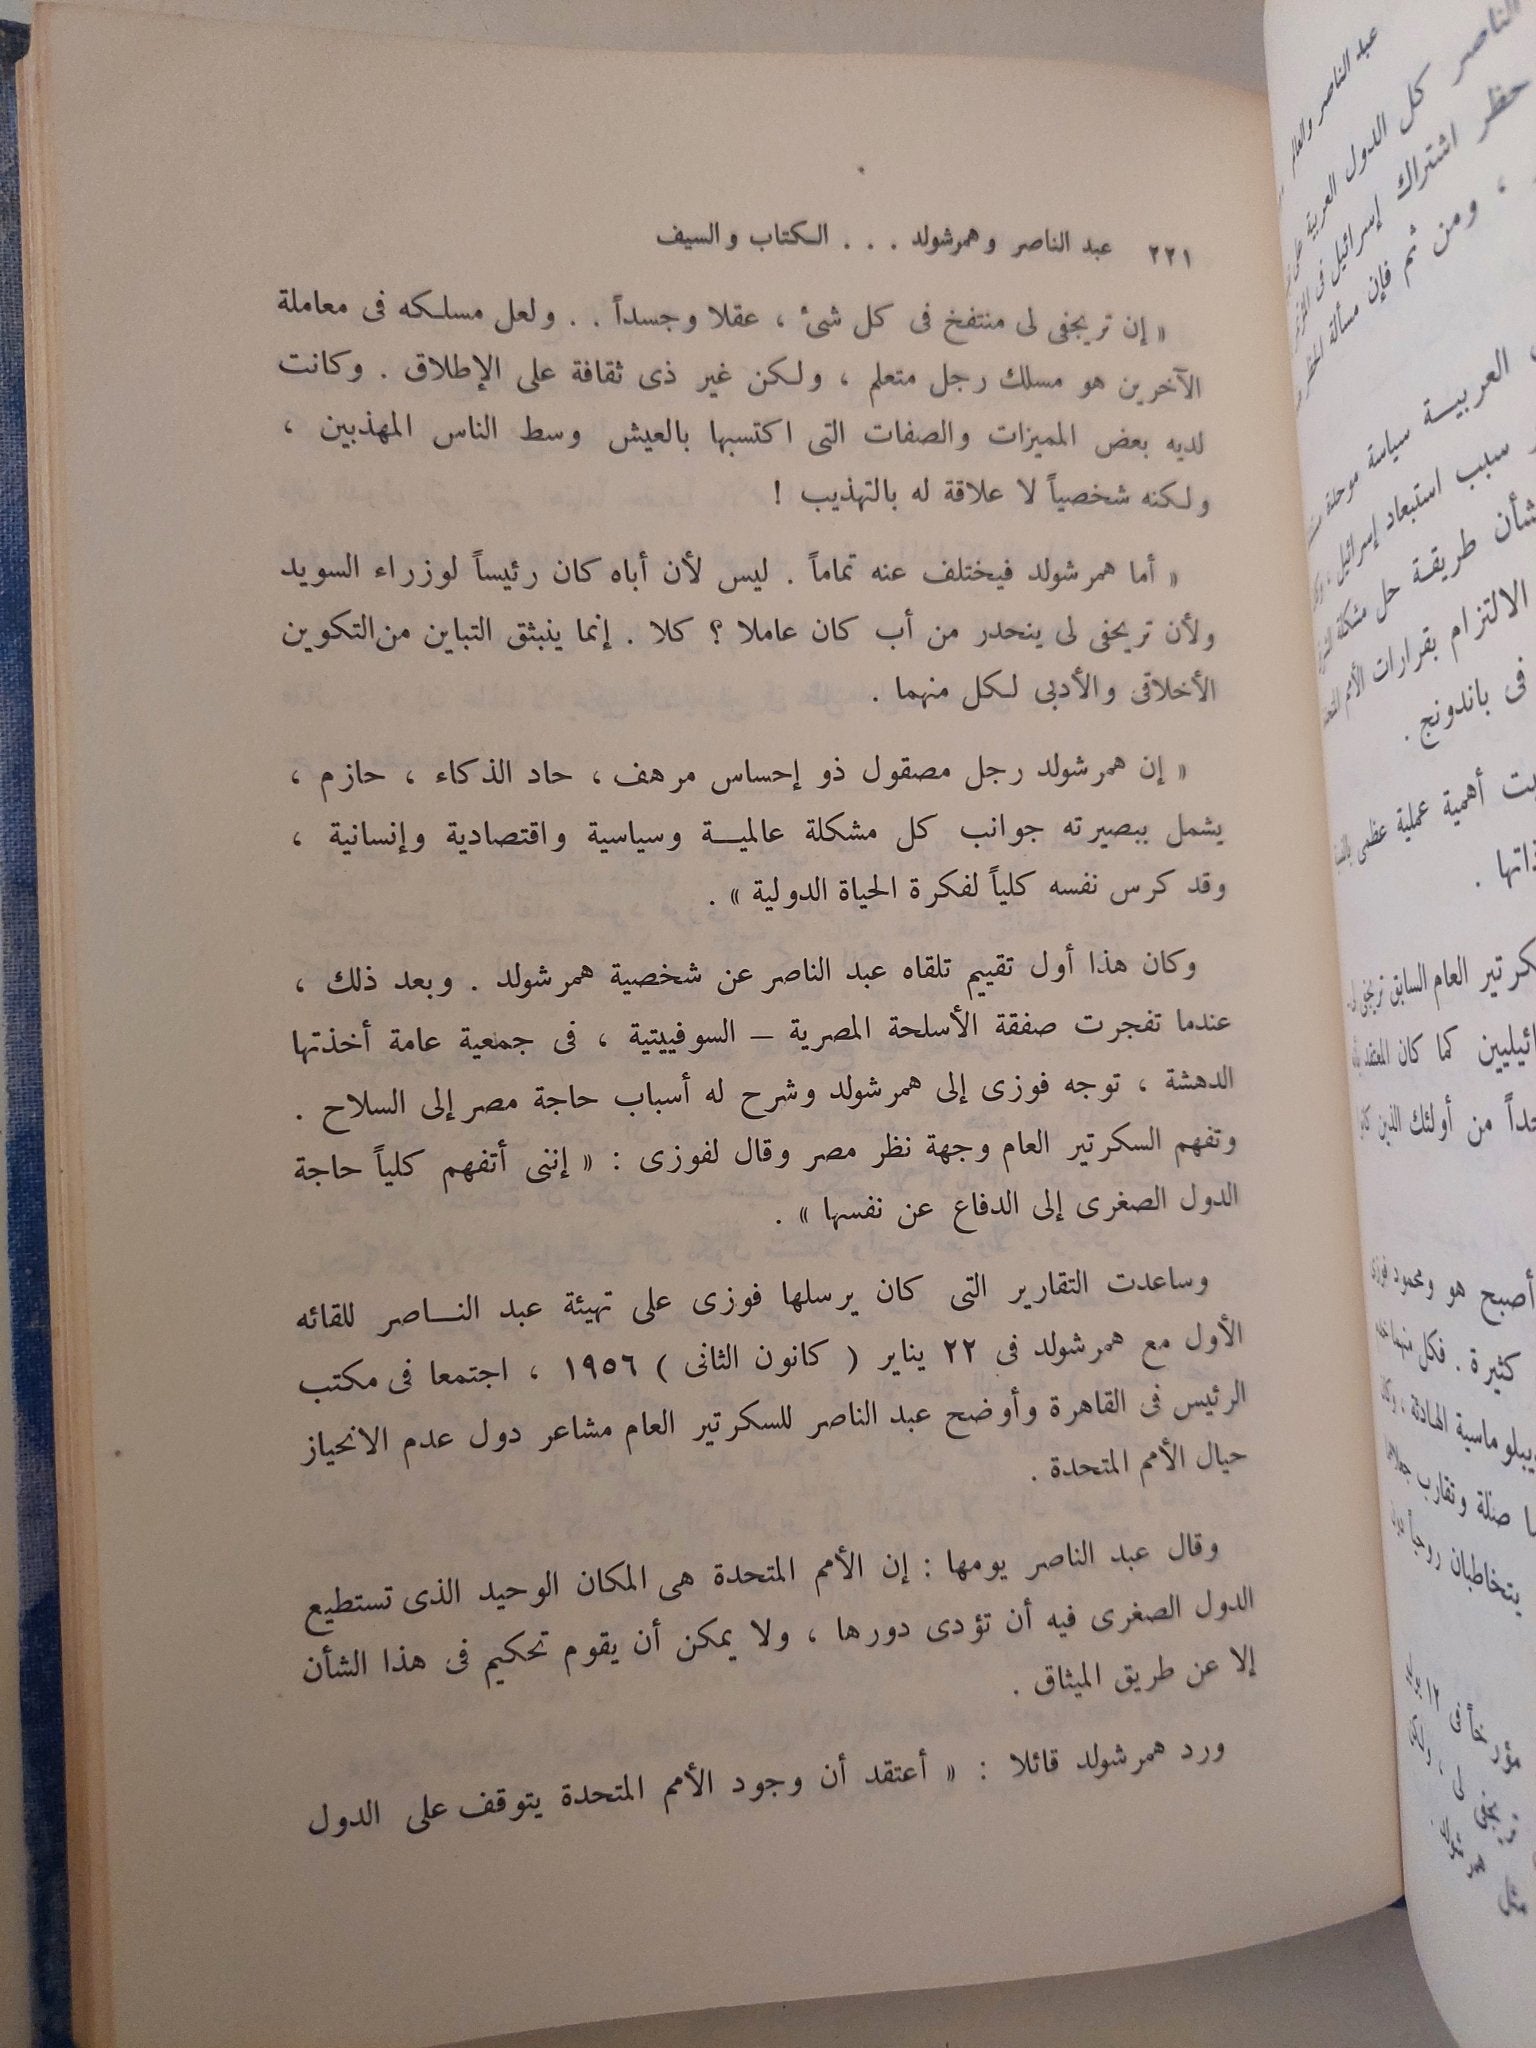 ٢٢١ عبد الناصر وهمرشولد . . . الكتاب والسيف
« إن تريجفى لى منتفخ فى كل شئ ، عقلا وجسداً . . ولعل مسلكه فى معاملة
الآخرين هو مسلك رجل متعلم ، ولكن غير ذى ثقافة على الإطلاق . وكانت
لديه بعض المميزات والصفات التى اكتسبها بالعيش وسط الناس المهذبين ،
ولكنه شخصياً لا علاقة له بالتهذيب !
« أما همرشولد فيختلف عنه تماماً . ليس لأن أباه كان رئيساً لوزراء السويد
ولأن تريجفى لى ينحدر من أب كان عاملا ؟ كلا . إنما ينبثق التباين من التكوين
الأخلاقى والأدبى لكل منهما .
« إن همرشولد رجل مصقول ذو إحساس مرهف ، حاد الذكاء ، حازم ،
يشمل ببصيرته جوانب كل مشكلة عالمية وسياسية واقتصادية وإنسانية ،
وقد كرس نفسه كلياً لفكرة الحياة الدولية » .
وكان هذا أول تقييم تلقاه عبد الناصر عن شخصية همرشولد . وبعد ذلك ،
عندما تفجرت صفقة الأسلحة المصرية – السوفييتية ، فى جمعية عامة أخذتها
الدهشة ، توجه فوزى إلى همرشولد وشرح له أسباب حاجة مصر إلى السلاح .
وتفهم السكرتير العام وجهة نظر مصر وقال لفوزى : « إننى أتفهم كلياً حاجة
الدول الصغرى إلى الدفاع عن نفسها » .
وساعدت التقارير التى كان يرسلها فوزى على تهيئة عبد الناصر للقائه
الأول مع همرشولد فى ٢٢ يناير ( كانون الثانى ) ١٩٥٦ ، اجتمعا فى مكتب
الرئيس فى القاهرة وأوضح عبد الناصر للسكرتير العام مشاعر دول عدم الانحياز
حيال الأمم المتحدة .
وقال عبد الناصر يومها : إن الأمم المتحدة هى المكان الوحيد الذى تستطيع
الدول الصغرى فيه أن تؤدى دورها ، ولا يمكن أن يقوم تحكيم فى هذا الشأن
إلا عن طريق الميثاق .
ورد همرشولد قائلا : « أعتقد أن وجود الأمم المتحدة يتوقف على الدول
عبد الناصر والعالم
الناصر كل الدول العربية على
حظر اشتراك إسرائيل فى
، ومن ثم فإن مسألة
العربية سياسة موحدة
سبب استبعاد إسرائيل
شأن طريقة حل مشكلة
الالتزام بقرارات الأمم
فى باندونج .
أهمية عملية عظمى
ذاتها .
العام السابق تريجفى
كما كان المعتقد
من أولئك الذين
أصبح هو ومحمود فوزى
كثيرة . فكل منهما
الهادئة ،
صلة وتقارب
يتخاطبان
مؤرخاً فى ١٢
مثل همرشولد